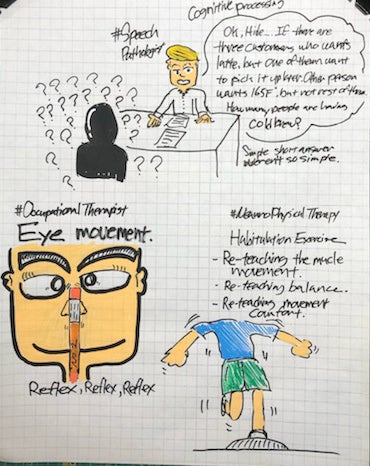 Cognitive processing
#Speech
Pathologist
Oh, Hide... IF there are
three customers, who wants
latte, but one of them want
to pick it up over. Other person
wants 165F°, but not rest of them.
How many people are having
cold brew?
Simple short answer
weren't so simple.
#Occupational Therapist
Eye movement.
Reflex, Reflex, Reflex
#NeuroPhysical Therapy
Habituation Exercise
- Re-teaching the mucle
movement.
- Re-teaching balance.
- Re-teaching movement